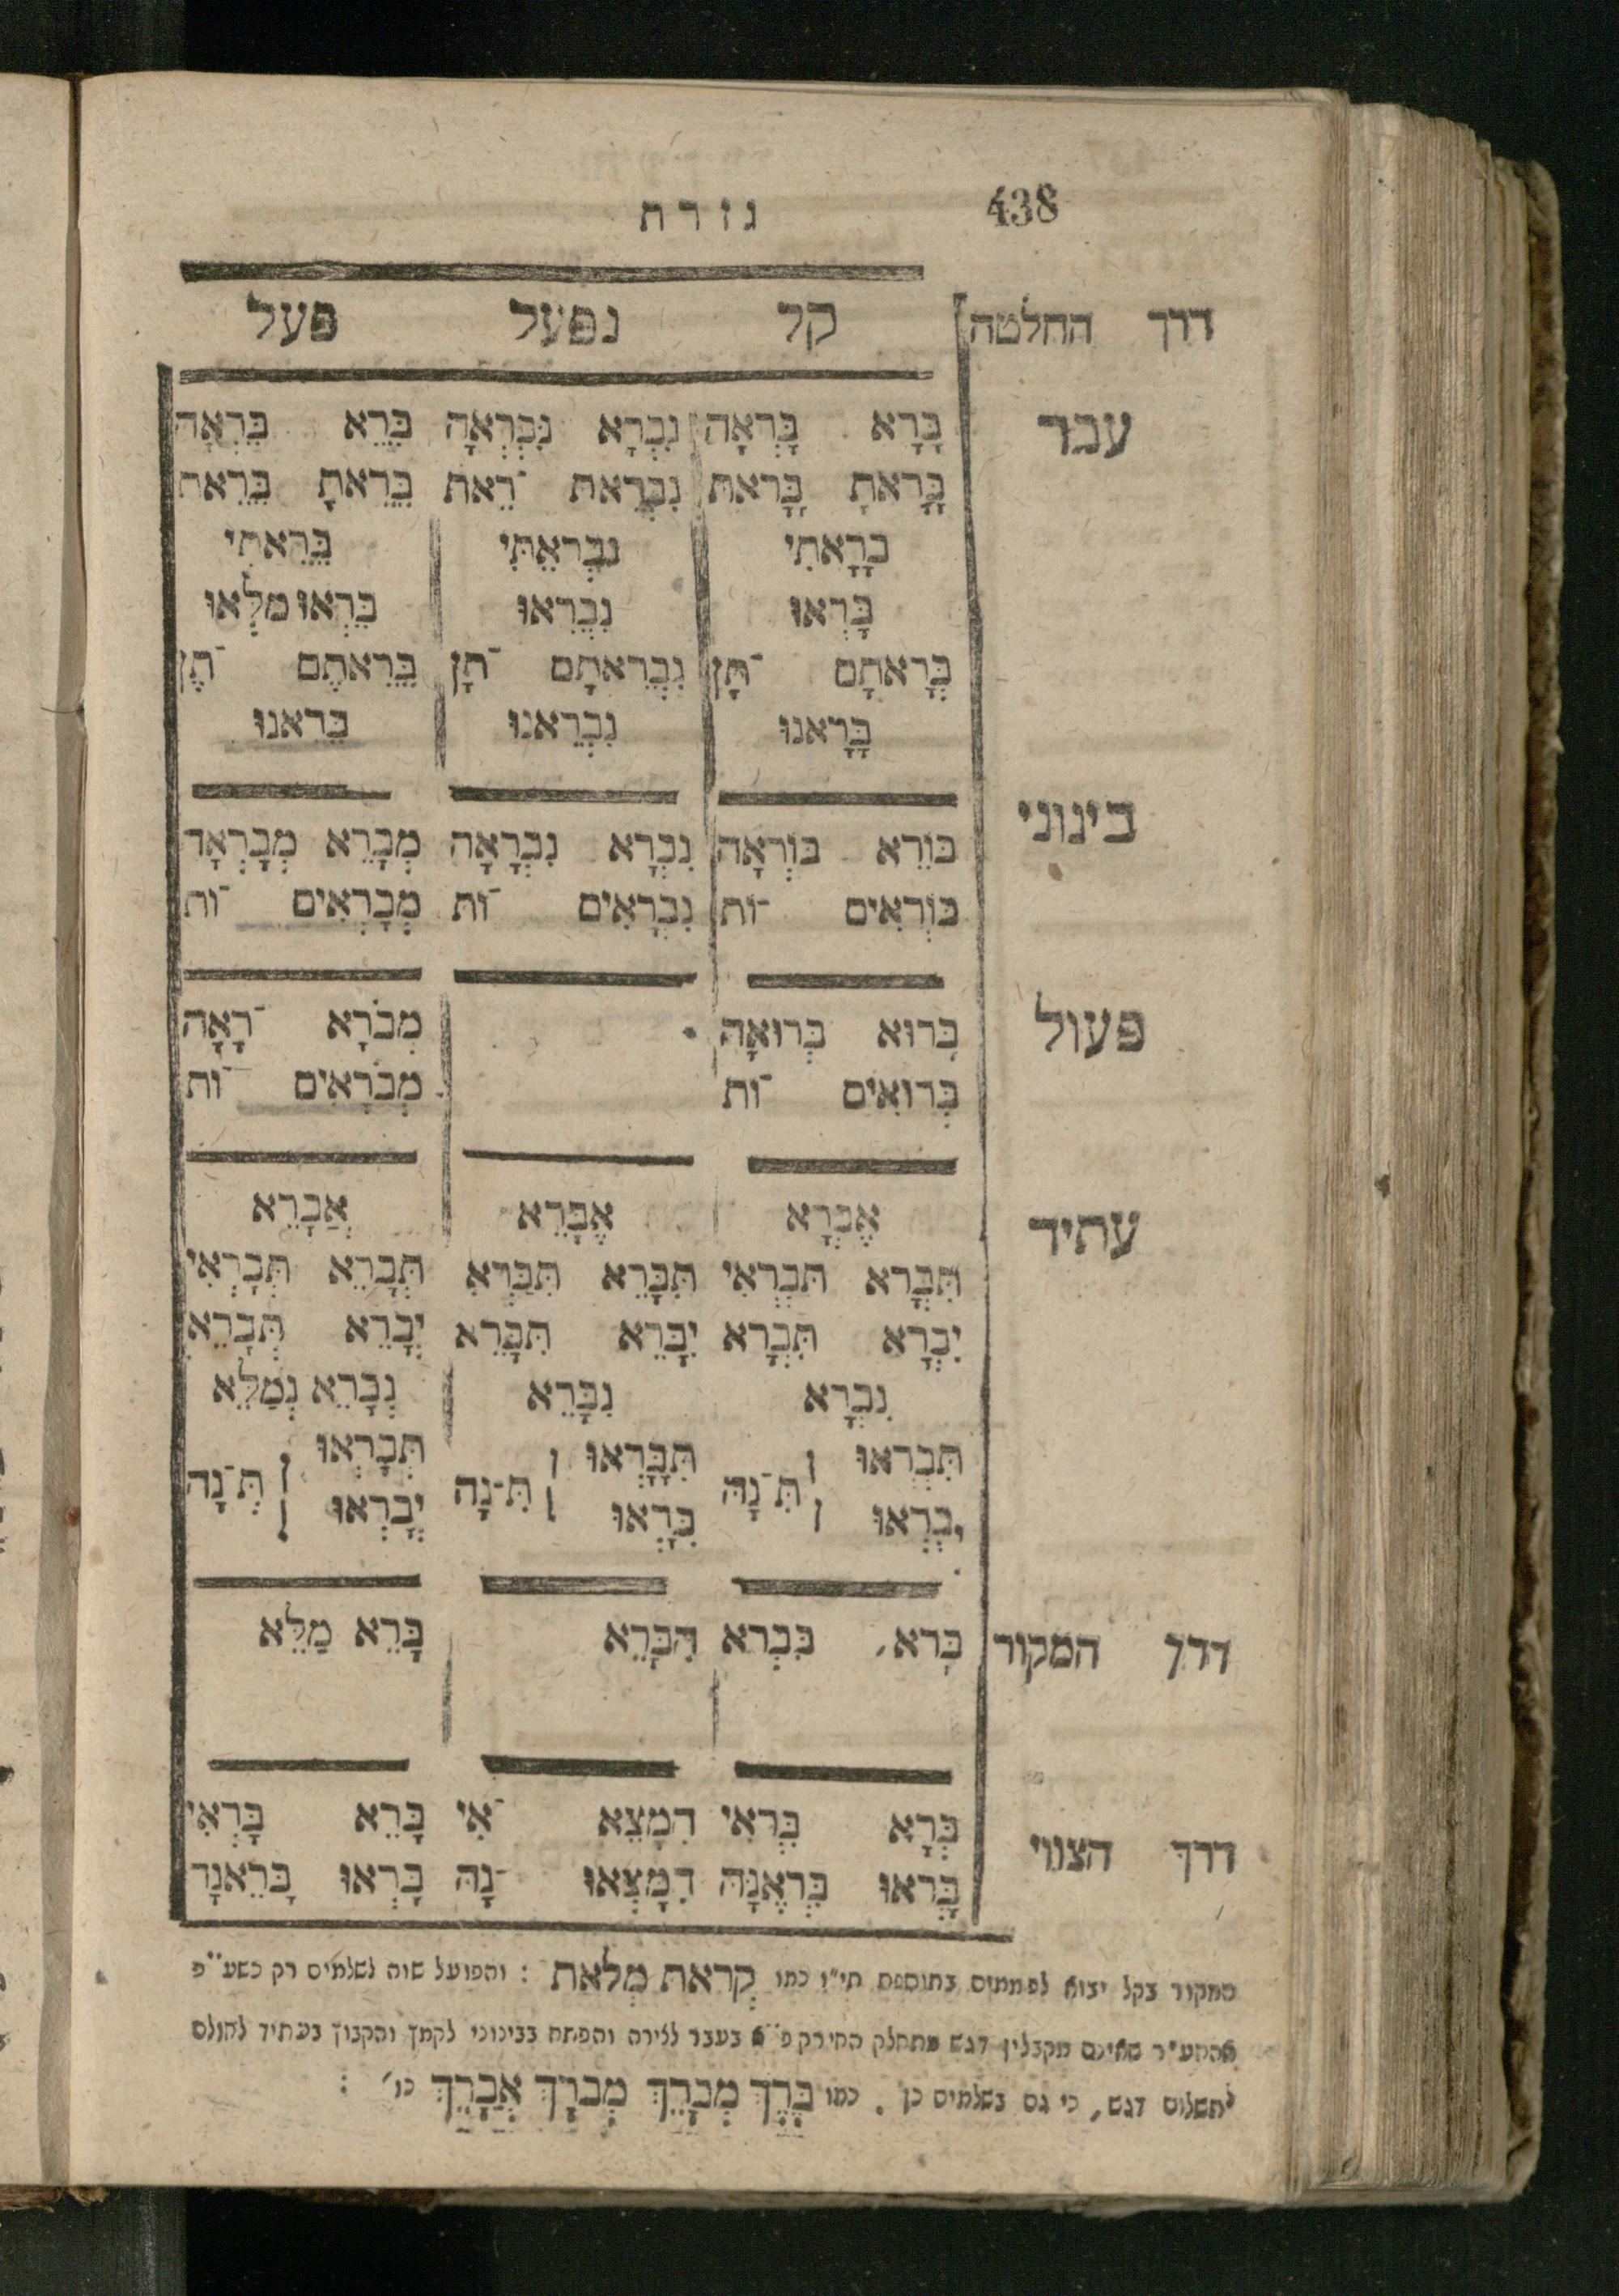 438 גזרת
דרך החלטה קל נפעל פעל
עבר בָּרָא בָּרְאָה נִבְרָא נִבְרְאָה בֵּרֵא בֵּרְאָה
בָּרָאתָ בָּרָאת נִבְרֵאתָ ־רֵאת בֵּרֵאתָ בֵּרֵאת
בָרָאתִי נִבְרֵאתִי בֵּרֵאתִי
בָּרְאוּ נִבְרְאוּ בֵּרְאוּ מִלְאוּ
בְּרָאתָם ־תָּן נִבְרֵאתָם ־תָן בֵּרֵאתֶם ־תֶן
בָּרָאנוּ נִבְרֵאנוּ בֵּרֵאנוּ
בינוני בּוֹרֵא בּוֹרְאָה נִבְרָא נִבְרָאָה מְבָרֵא מְבָרְאָה
בּוֹרְאִים ־וֹת נִבְרָאִים ־וֹת מְבָרְאִים ־וֹת
פעול בָּרוּא בְּרוּאָה מְבֹרָא ־רָאָה
בְּרוּאִים ־וֹת מְבֹרָאִים ־וֹת
עתיד אֶבְרָא אֶבָּרֵא אֲבָרֵא
תִּבְרָא תִּבְרְאִי תִּבָּרֵא תִּבָּרְאִי תְּבָרֵא תְּבָרְאִי
יִבְרָא תִּבְרָא יִבָּרֵא תִּבָּרֵא יְבָרֵא תְּבָרֵא
נִבְרָא נִבָּרֵא נְבָרֵא נְמַלֵּא
תִּבְרְאוּ תִּבָּרְאוּ תְּבָרְאוּ
תִּ־נָה תִּ־נָה תְּ־נָה
יִבְרְאוּ יִבָּרְאוּ יְבָרְאוּ
דרך המקור בְּרֹא, בִּבְרֹא הִבָּרֵא בָּרֵא מַלֵּא
דרך הצווי בְּרָא בִּרְאִי הִמָּצֵא ־אִי בָּרֵא בָּרְאִי
בִּרְאוּ בְּרֶאנָה הִמָּצְאוּ ־נָה בָּרְאוּ בָּרֵאנָה
המקור בקל יבוא לפעמים בתוספת תי״ו כמו קְרֹאת מְלֹאת : והפועל שוה לשלמים רק כשע״פ
אהחע״ר שאינם מקבלין דגש מתחלק החירק פ״א בעבר לצירה והפתח בבינוני לקמץ והקבוץ בעתיד לחולם
לתשלום דגש, כי גם בשלמים כן . כמו בֵּרֵךְ מְבָרֵךְ מְבֹרָךְ אֲבָרֵךְ כו׳ :